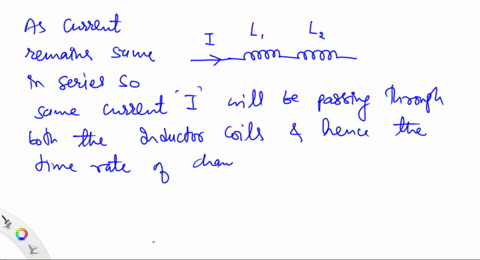 As current
I L1 L2
remains same
in series so
same current "I" will be passing through
both the inductor coils & hence the
time rate of chan